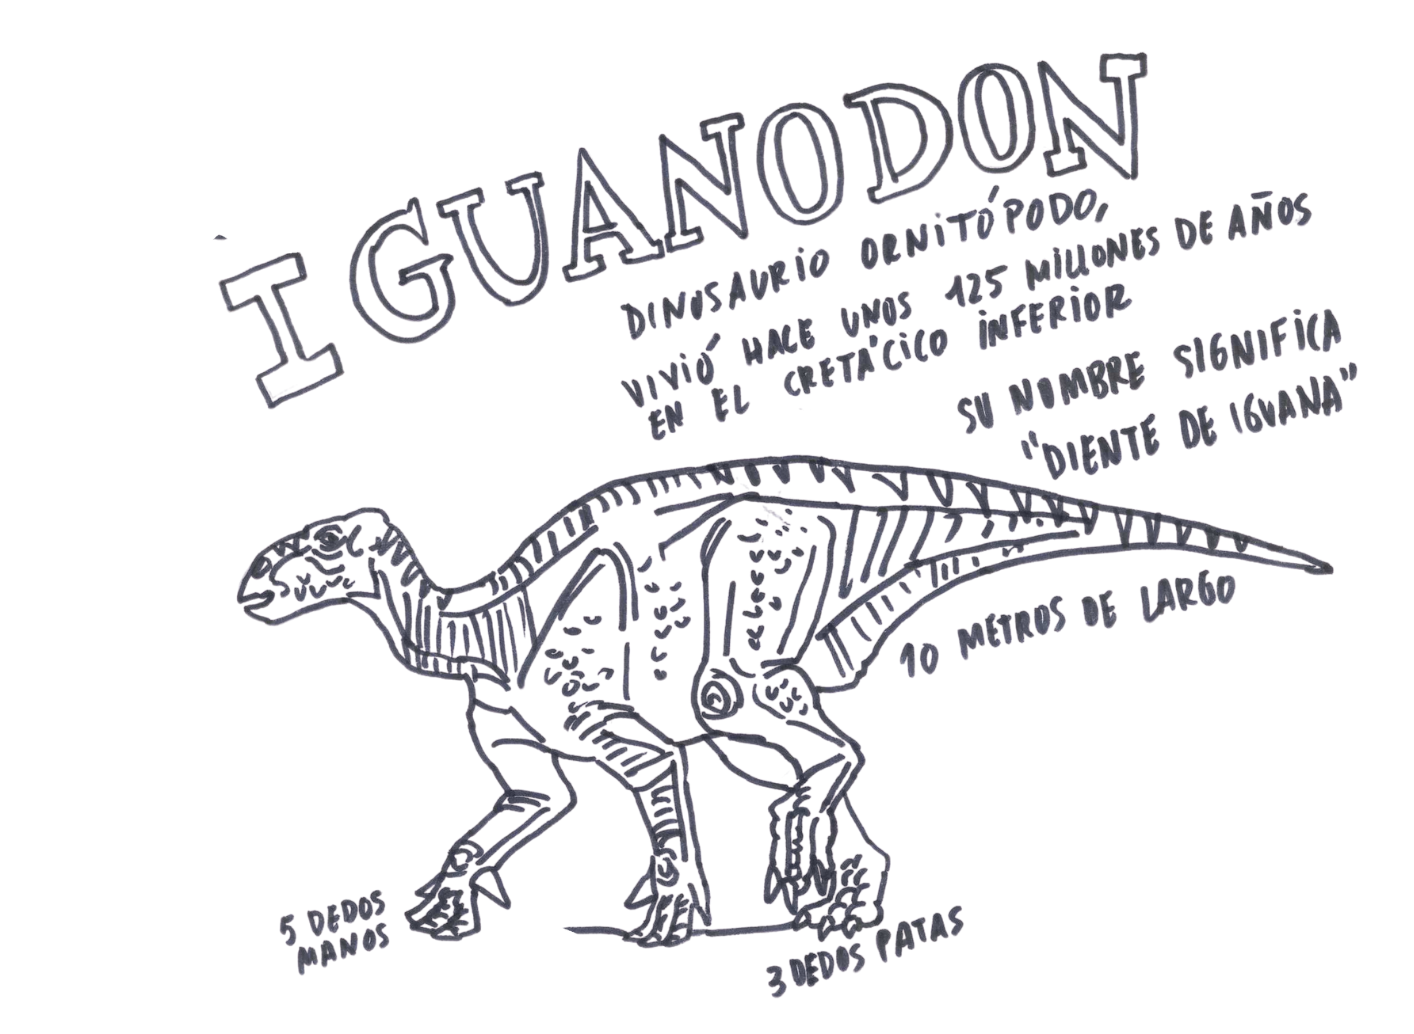 IGUANODON
DINOSAURIO ORNITÓPODO,
VIVIÓ HACE UNOS 125 MILLONES DE AÑOS
EN EL CRETÁCICO INFERIOR
SU NOMBRE SIGNIFICA
"DIENTE DE IGUANA"
10 METROS DE LARGO
5 DEDOS
MANOS
3 DEDOS PATAS